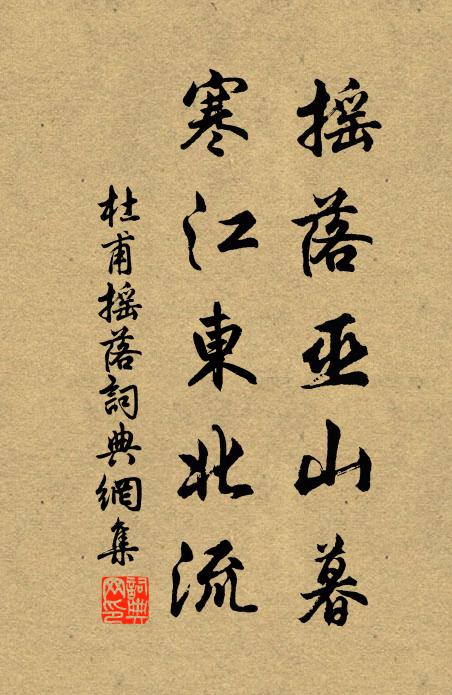 搖落巫山暮
寒江東北流
杜甫搖落詞典網集
詞典網印